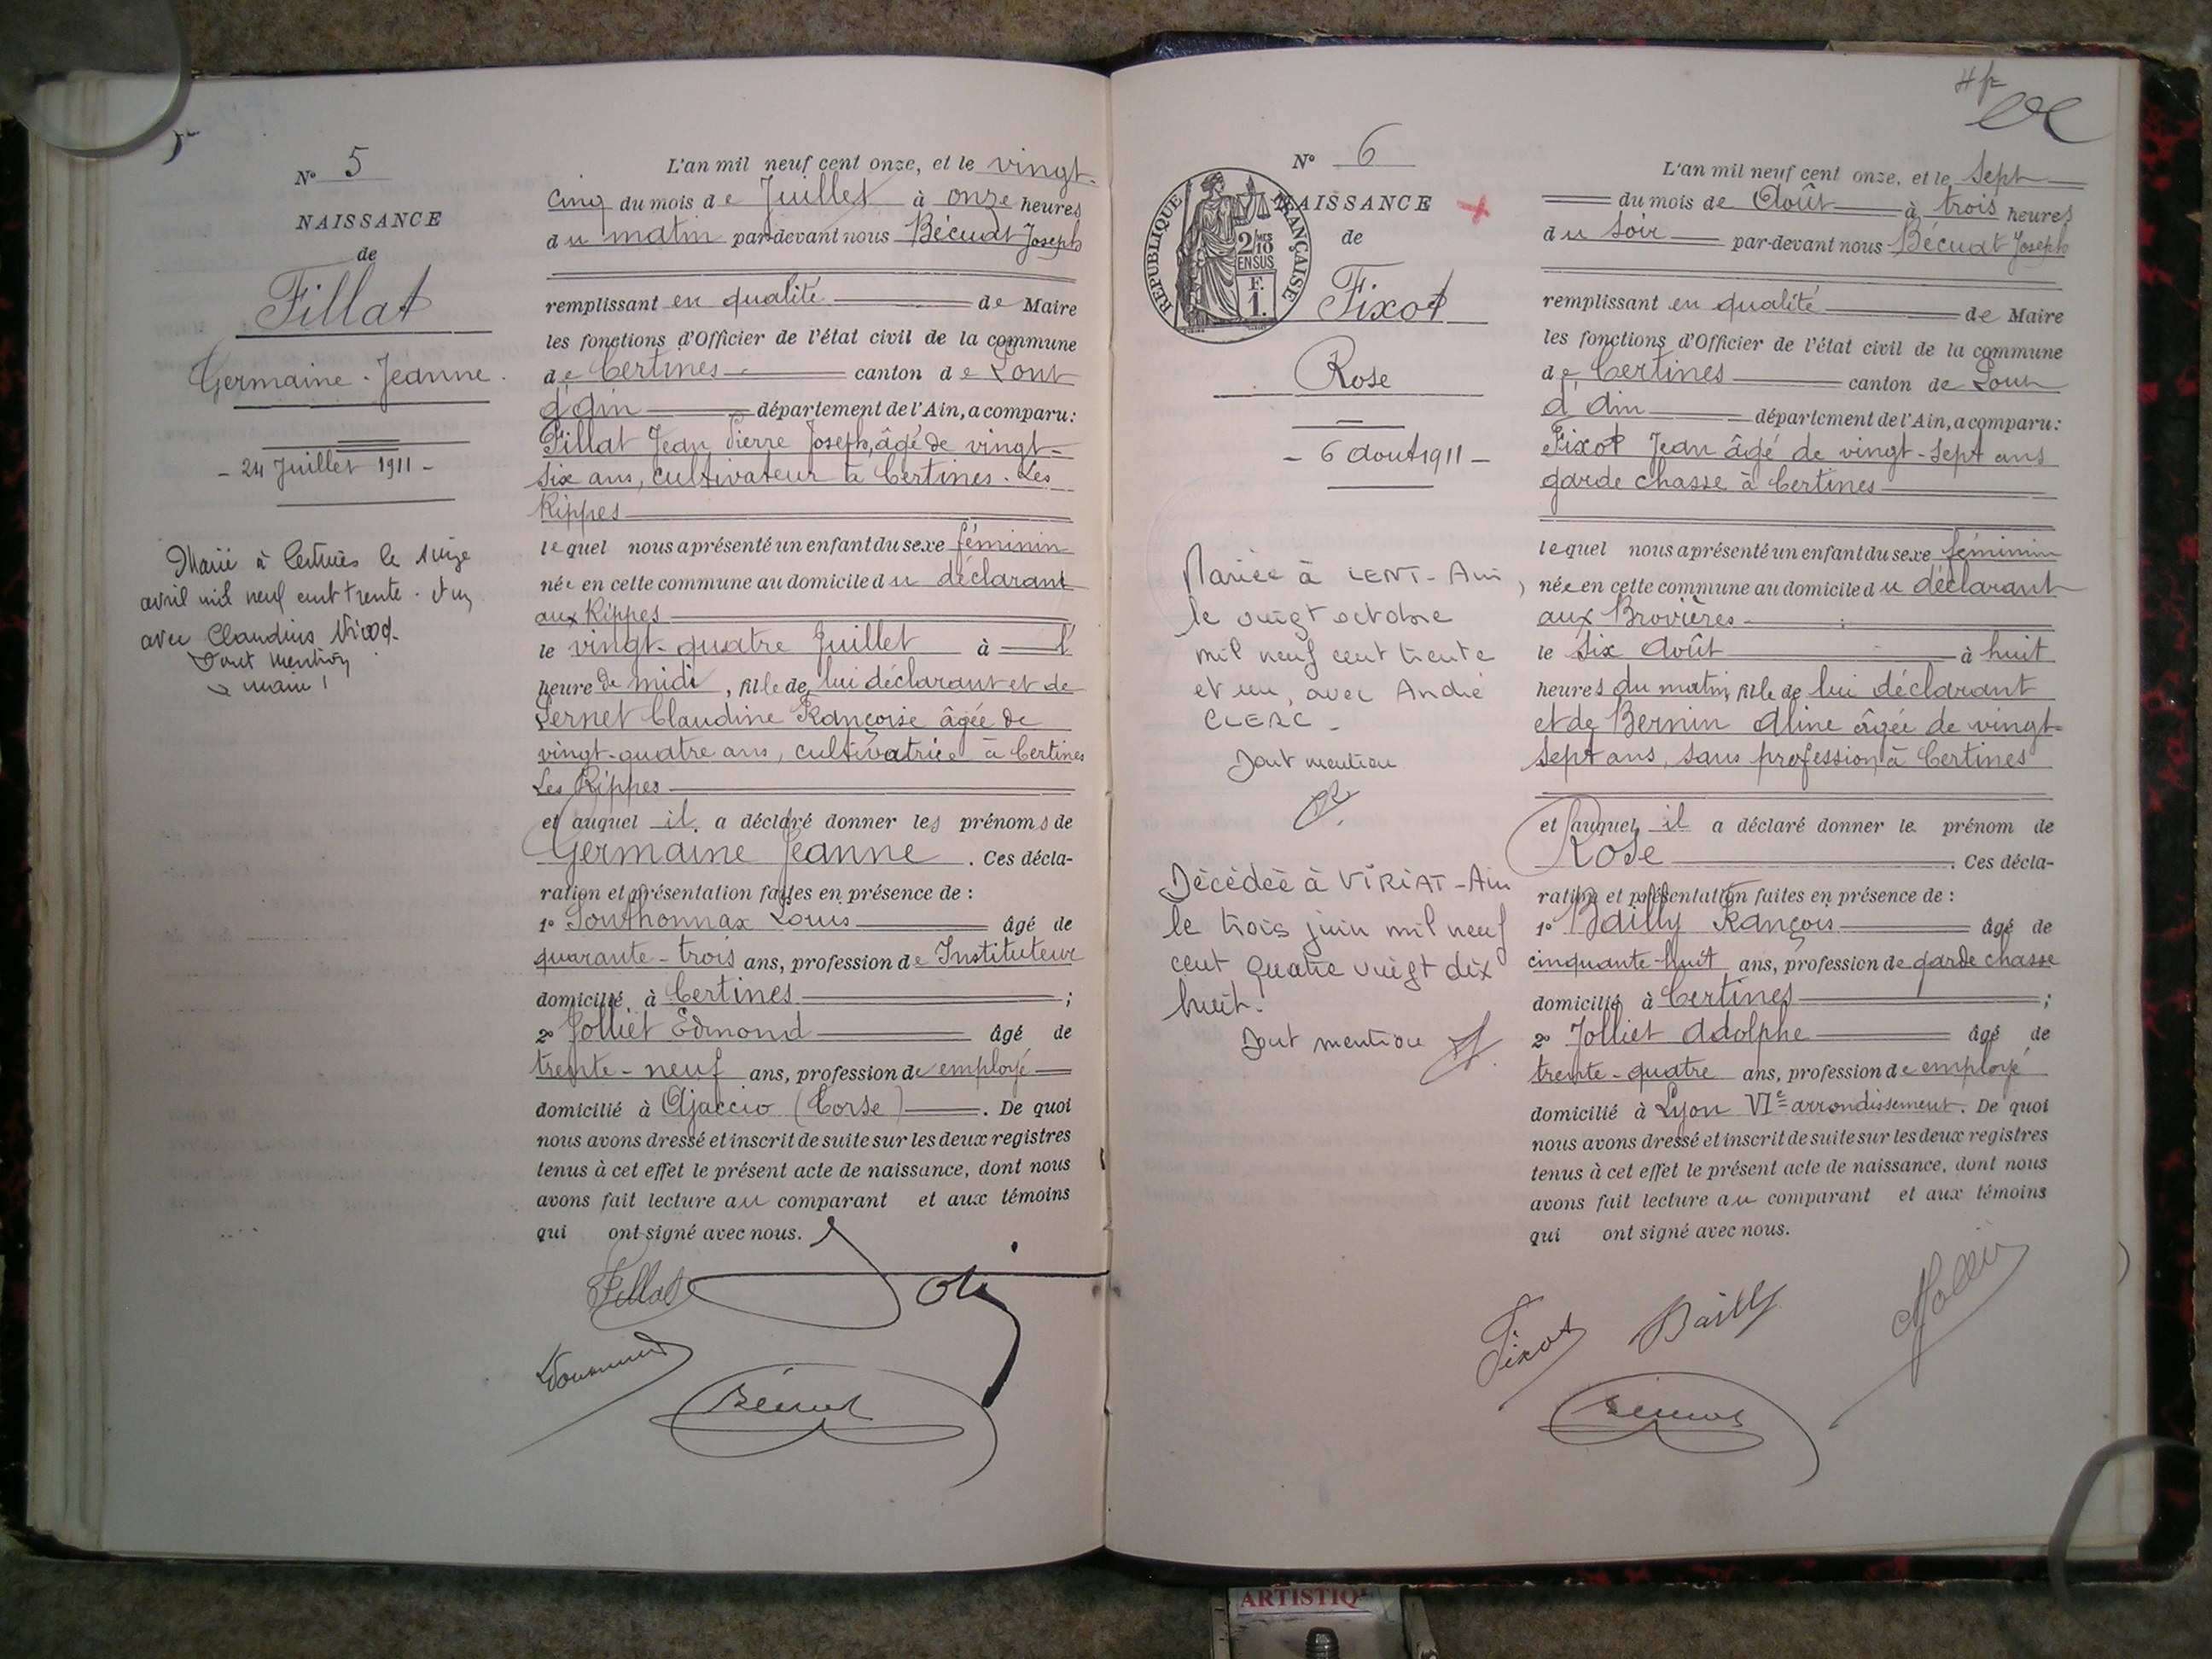 N° 5
NAISSANCE
de
Fillat
Germaine-Jeanne.
- 24 Juillet 1911 -
Marié à Certines le
avril mil neuf cent trente et un
avec Claudius
Dont mention
L'an mil neuf cent onze, et le vingt-
cinq du mois de Juillet à onze heures
du matin par-devant nous Bécuat Joseph
remplissant en qualité de Maire
les fonctions d'Officier de l'état civil de la commune
de Certines canton de Pont
d'Ain département de l'Ain, a comparu:
Fillat Jean Pierre Joseph, âgé de vingt-
six ans, cultivateur à Certines. Les
Rippes
lequel nous a présenté un enfant du sexe féminin
née en cette commune au domicile du déclarant
aux Rippes
le vingt-quatre Juillet à l'
heure de midi, fille de lui déclarant et de
Pernet Claudine Françoise âgée de
vingt-quatre ans, cultivatrice à Certines
Les Rippes
et auquel il a déclaré donner les prénoms de
Germaine Jeanne. Ces décla-
ration et présentation faites en présence de :
1° Louis âgé de
quarante-trois ans, profession de Instituteur
domicilié à Certines ;
2° Jolliet Edmond âgé de
trente-neuf ans, profession de employé
domicilié à Ajaccio (Corse). De quoi
nous avons dressé et inscrit de suite sur les deux registres
tenus à cet effet le présent acte de naissance, dont nous
avons fait lecture au comparant et aux témoins
qui ont signé avec nous.
Fillat
Bécuat
N° 6
NAISSANCE
de
RÉPUBLIQUE FRANÇAISE
2/10 MES
EN SUS
F.
1.
Fixot
Rose
- 6 Aout 1911 -
Mariée à LENT-Ain,
le vingt octobre
mil neuf cent trente
et un, avec André
CLERC -
Dont mention
Décédée à VIRIAT-Ain
le trois juin mil neuf
cent quatre vingt dix
huit.
Dont mention
L'an mil neuf cent onze, et le Sept
du mois de Août à trois heures
du soir par-devant nous Bécuat Joseph
remplissant en qualité de Maire
les fonctions d'Officier de l'état civil de la commune
de Certines canton de Pont
d'Ain département de l'Ain, a comparu:
Fixot Jean âgé de vingt-sept ans
garde chasse à Certines
lequel nous a présenté un enfant du sexe féminin
née en cette commune au domicile du déclarant
aux Brovières
le six Août à huit
heures du matin, fille de lui déclarant
et de Bernin Aline âgée de vingt-
sept ans, sans profession, à Certines
et auquel il a déclaré donner le prénom de
Rose. Ces décla-
ration et présentation faites en présence de :
1° Bailly François âgé de
cinquante-huit ans, profession de garde chasse
domicilié à Certines ;
2° Jolliet Adolphe âgé de
trente-quatre ans, profession de employé
domicilié à Lyon VIe arrondissement. De quoi
nous avons dressé et inscrit de suite sur les deux registres
tenus à cet effet le présent acte de naissance, dont nous
avons fait lecture au comparant et aux témoins
qui ont signé avec nous.
Fixot Bailly
Bécuat
ARTISTIQ